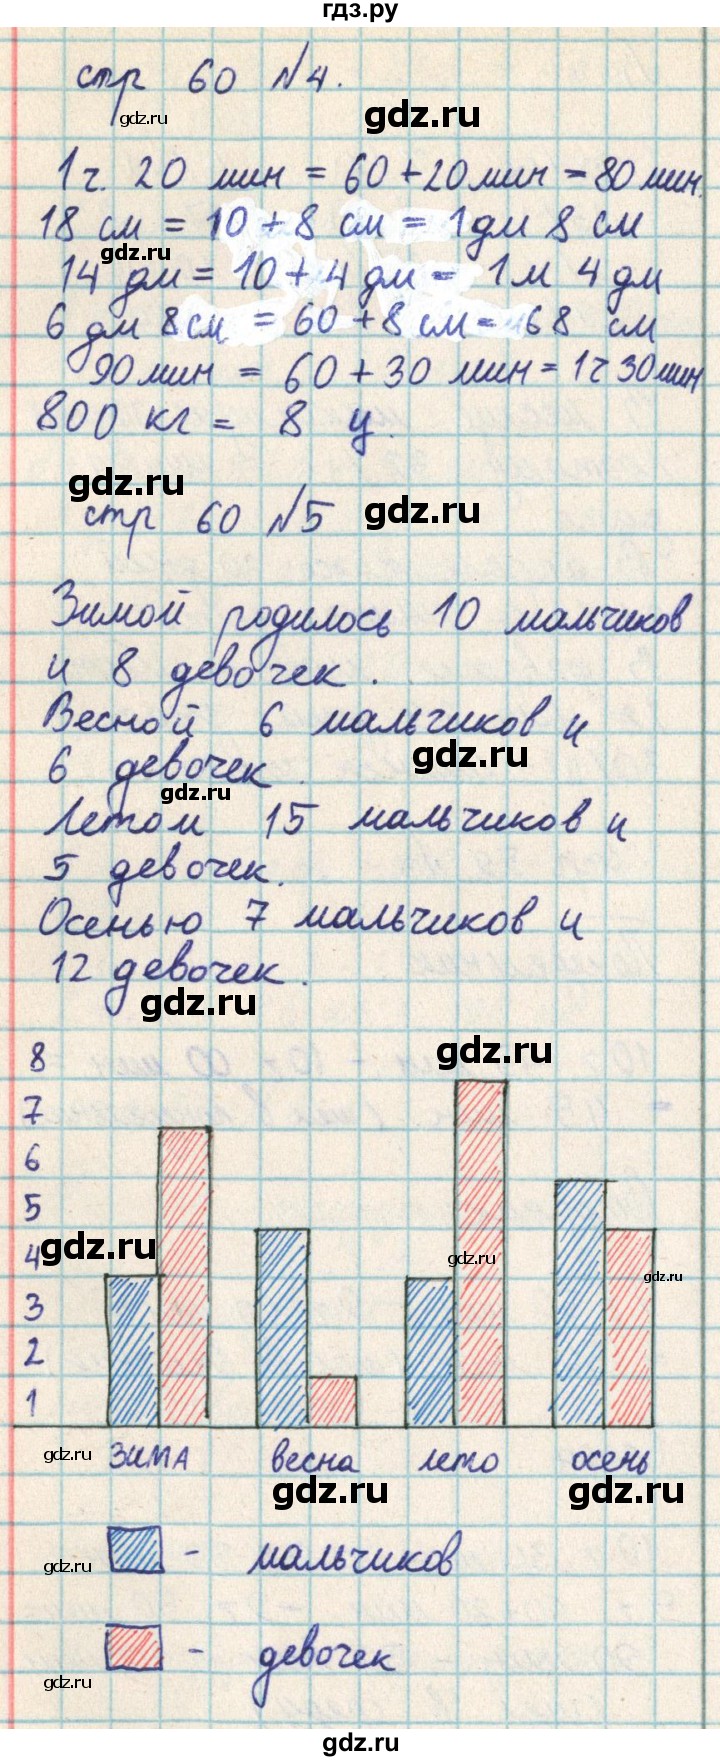 гдз.ру
стр 60 №4.
gdz.ru
gdz.ru
1 ч. 20 мин = 60 + 20 мин = 80 мин.
18 см = 10 + 8 см = 1 дм 8 см
gdz.ru
14 дм = 10 + 4 дм = 1 м 4 дм
6 дм 8 см = 60 + 8 см = 68 см
90 мин = 60 + 30 мин = 1 ч 30 мин
800 кг = 8 ц.
gdz.ru
стр 60 №5
gdz.ru
Зимой родилось 10 мальчиков
и 8 девочек.
Весной 6 мальчиков и
gdz.ru
6 девочек.
gdz.ru
Летом 15 мальчиков и
5 девочек.
Осенью 7 мальчиков и
12 девочек.
gdz.ru
gdz.ru
8
7
6
5
4
gdz.ru
gdz.ru
gdz.ru
3
2
1
gdz.ru
зима весна лето осень
gdz.ru
gdz.ru
gdz.ru
- мальчиков
- девочек
gdz.ru
gdz.ru